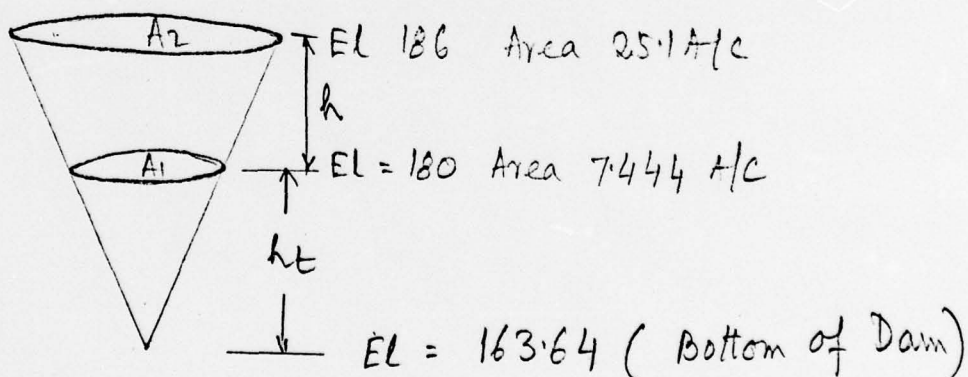 A2 El 186 Area 25.1 A/C
h
A1 El = 180 Area 7.444 A/C
ht
El = 163.64 ( Bottom of Dam)